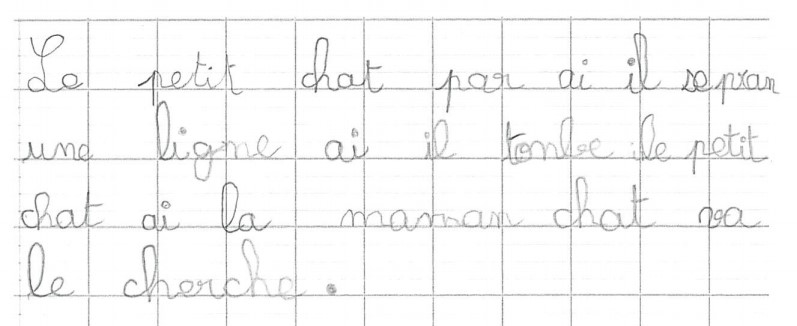 Le petit chat par ai il sepran
une ligne ai il tonbe le petit
chat ai la maman chat va
le cherche.